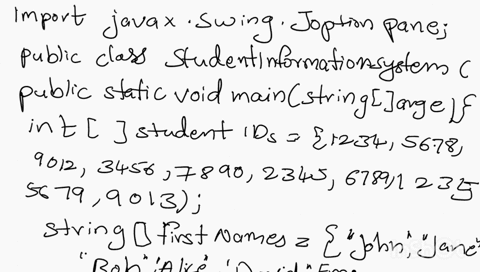 Import javax.swing.Joption pane;
public class StudentInformationsystem (
public static void main(string[]arge){
int [ ] student IDs = {1234, 5678,
9012, 3456, 7890, 2345, 6789,1235
5679, 9013);
string [] first Names = {"John", "Jane"
"Bob" "Alice"